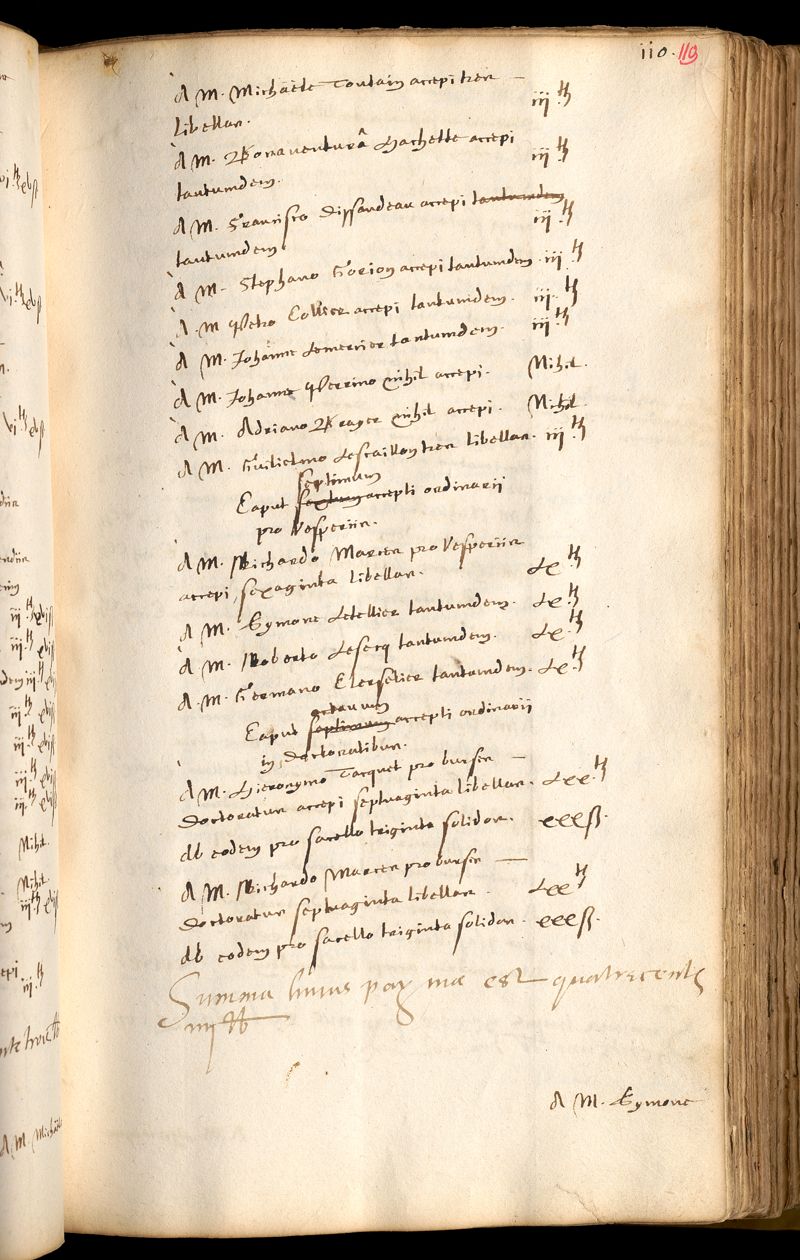 110. 119
A M. Michaële Toutain accepi tres
libellas. iij ₶
A M. Bonaventurâ Hachette accepi
tantumdem. iij ₶
A M. Francisco Dissaudeau accepi tantumdem
tantumdem. iij ₶
A M. Stephano Gorion accepi tantumdem. iij ₶
A M. Petro Collier accepi tantumdem. iij. ₶
A M. Johanne Lemercier tantumdem. iij ₶
A M. Johanne Perrino nihil accepi. Nihil.
A M. Adriano Brayer nihil accepi. Nihil.
A M. Guilielmo Lescaillon tres libellas. iij ₶
septimum
Caput sextum accepti ordinarii
pro Vesperiis.
A M. Richardo Marces pro Vesperiis
accepi, sexaginta libellas. Lx ₶
A M. Eymone Letellier tantumdem. Lx. ₶
A M. Roberto Lesecq tantumdem. Lx ₶
A M. Germano Clerselier tantumdem. Lx ₶
octavum
Caput septimum accepti ordinarii
in doctoratibus.
A M. Hieronymo Tacquet pro bursis
doctoratus accepi septuaginta libellas. Lxx. ₶
Ab eodem pro sacello triginta solidos. xxxß.
A M. Richardo Marces pro bursis
doctoratus septuaginta libellas. Lxx ₶
Ab eodem pro sacello triginta solidos. xxxß.
Summa huius paginae est quatrecents
iiij ₶
A M. Eymone